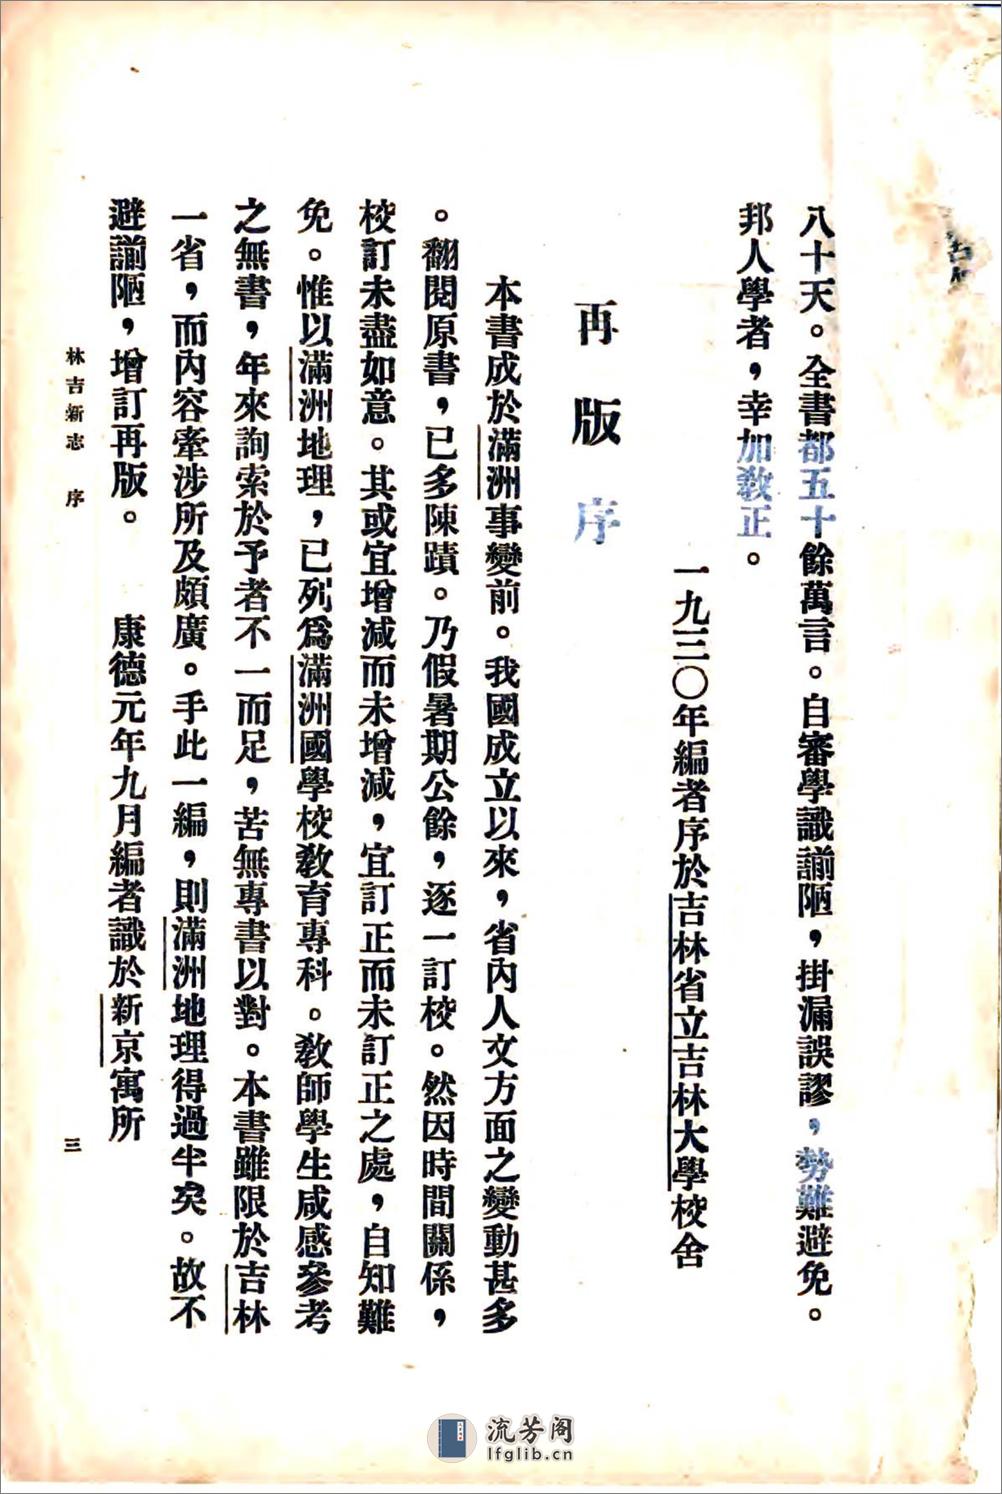 八十天。全書都五十餘萬言。自審學識謭陋，掛漏誤謬，勢難避免。
邦人學者，幸加敎正。
一九三〇年編者序於吉林省立吉林大學校舍
再版序
本書成於滿洲事變前。我國成立以來，省內人文方面之變動甚多
。翻閱原書，已多陳蹟。乃假暑期公餘，逐一訂校。然因時間關係，
校訂未盡如意。其或宜增減而未增減，宜訂正而未訂正之處，自知難
免。惟以滿洲地理，已列爲滿洲國學校敎育專科。敎師學生咸感參考
之無書，年來詢索於予者不一而足，苦無專書以對。本書雖限於吉林
一省，而內容牽涉所及頗廣。手此一編，則滿洲地理得過半矣。故不
避謭陋，增訂再版。 康德元年九月編者識於新京寓所
林吉新志 序
三
流芳阁
lfglib.cn